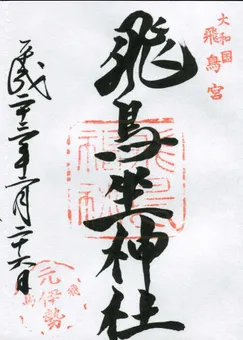 大和國
飛鳥宮
飛鳥坐神社
平成二十三年一月二十六日
元伊勢